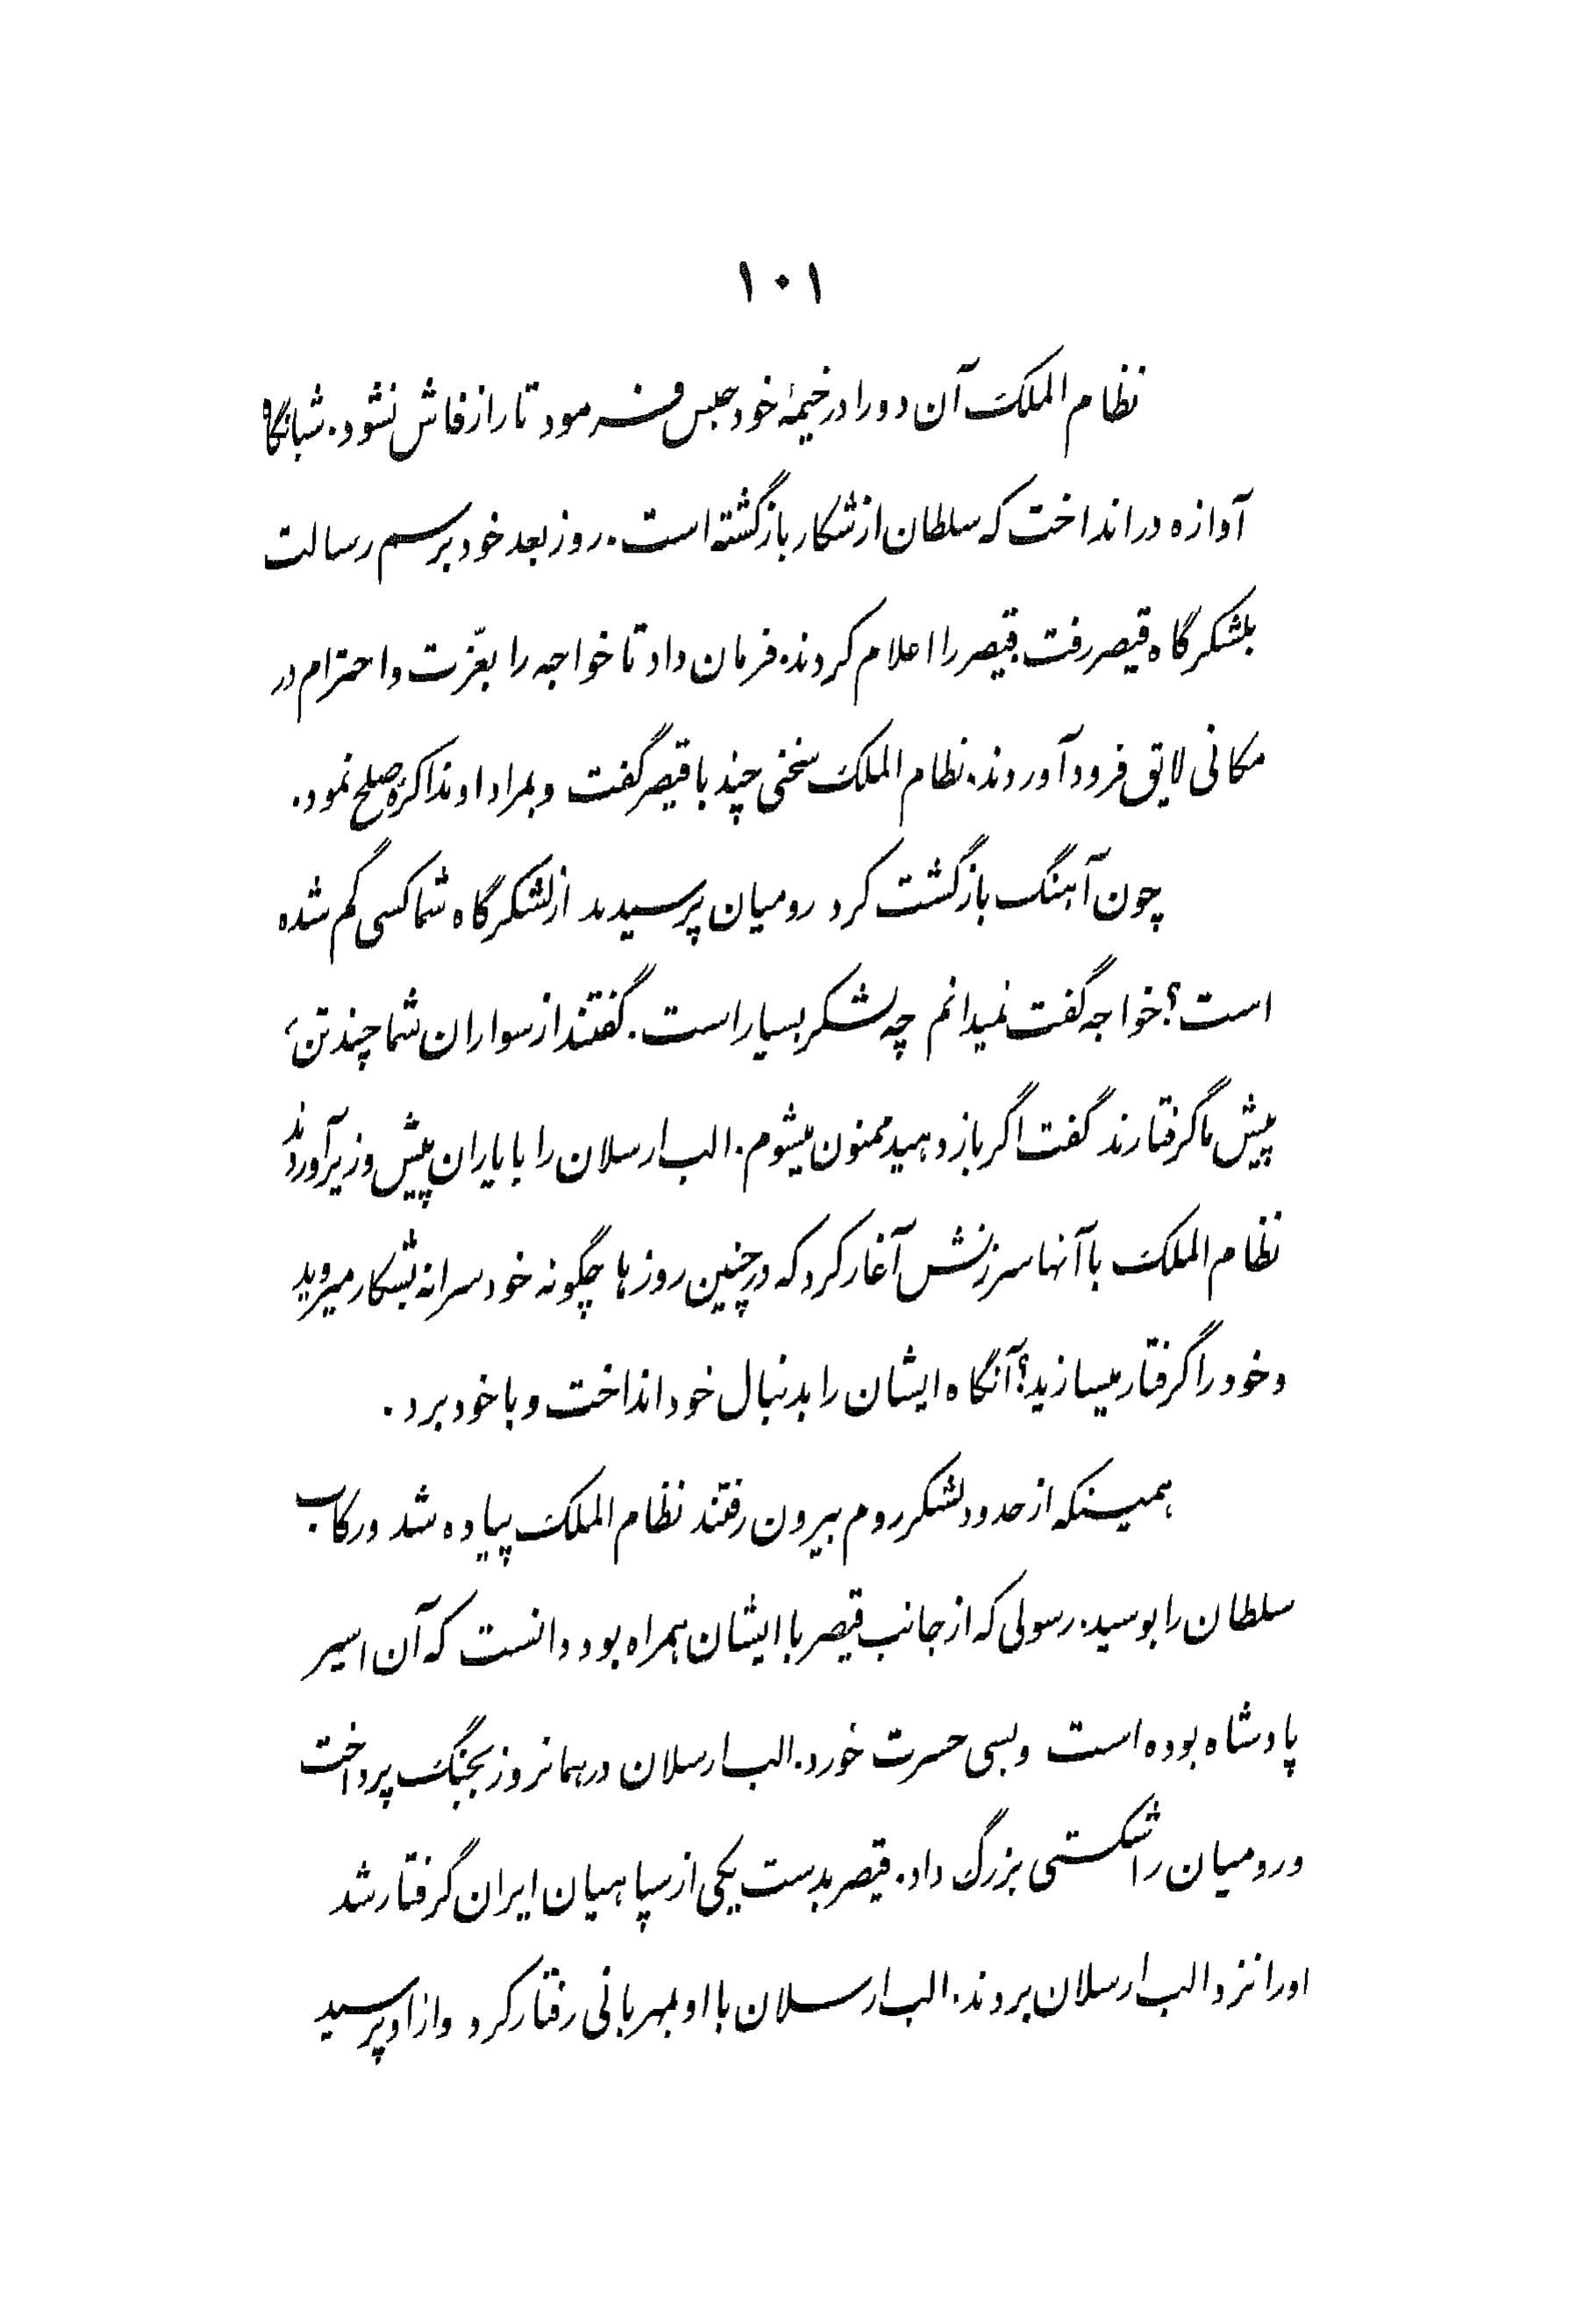 ۱۰۱
نظام الملک آن دو را در خیمهٔ خود حبس فرمود تا راز فاش نشود. شبانگاه
آوازه در انداخت که سلطان از شکار بازگشته است. روز بعد خود برسم رسالت
بلشکرگاه قیصر رفت. قیصر را اعلام کردند. فرمان داد تا خواجه را بعزّت و احترام در
مکانی لایق فرود آوردند. نظام الملک سخنی چند با قیصر گفت و بمراد او مذاکرهٔ صلح نمود.
چون آهنگ بازگشت کرد رومیان پرسیدند از لشکرگاه شما کسی گم شده
است؟ خواجه گفت نمیدانم چه لشکر بسیار است. گفتند از سواران شما چند تن
پیش ما گرفتارند گفت اگر باز دهید ممنون میشوم. الب ارسلان را با یاران پیش وزیر آوردند
نظام الملک با آنها سرزنش آغاز کرد که در چنین روزها چگونه خودسرانه بشکار میروید
و خود را گرفتار میسازید؟ آنگاه ایشان را بدنبال خود انداخت و با خود برد.
همینکه از حدود لشکر روم بیرون رفتند نظام الملک پیاده شد و رکاب
سلطان را بوسید. رسولی که از جانب قیصر با ایشان همراه بود دانست که آن اسیر
پادشاه بوده است و بسی حسرت خورد. الب ارسلان در همانروز بجنگ پرداخت
و رومیان را شکستی بزرگ داد. قیصر بدست یکی از سپاهیان ایران گرفتار شد
او را نزد الب ارسلان بردند. الب ارسلان با او بمهربانی رفتار کرد و از او پرسید